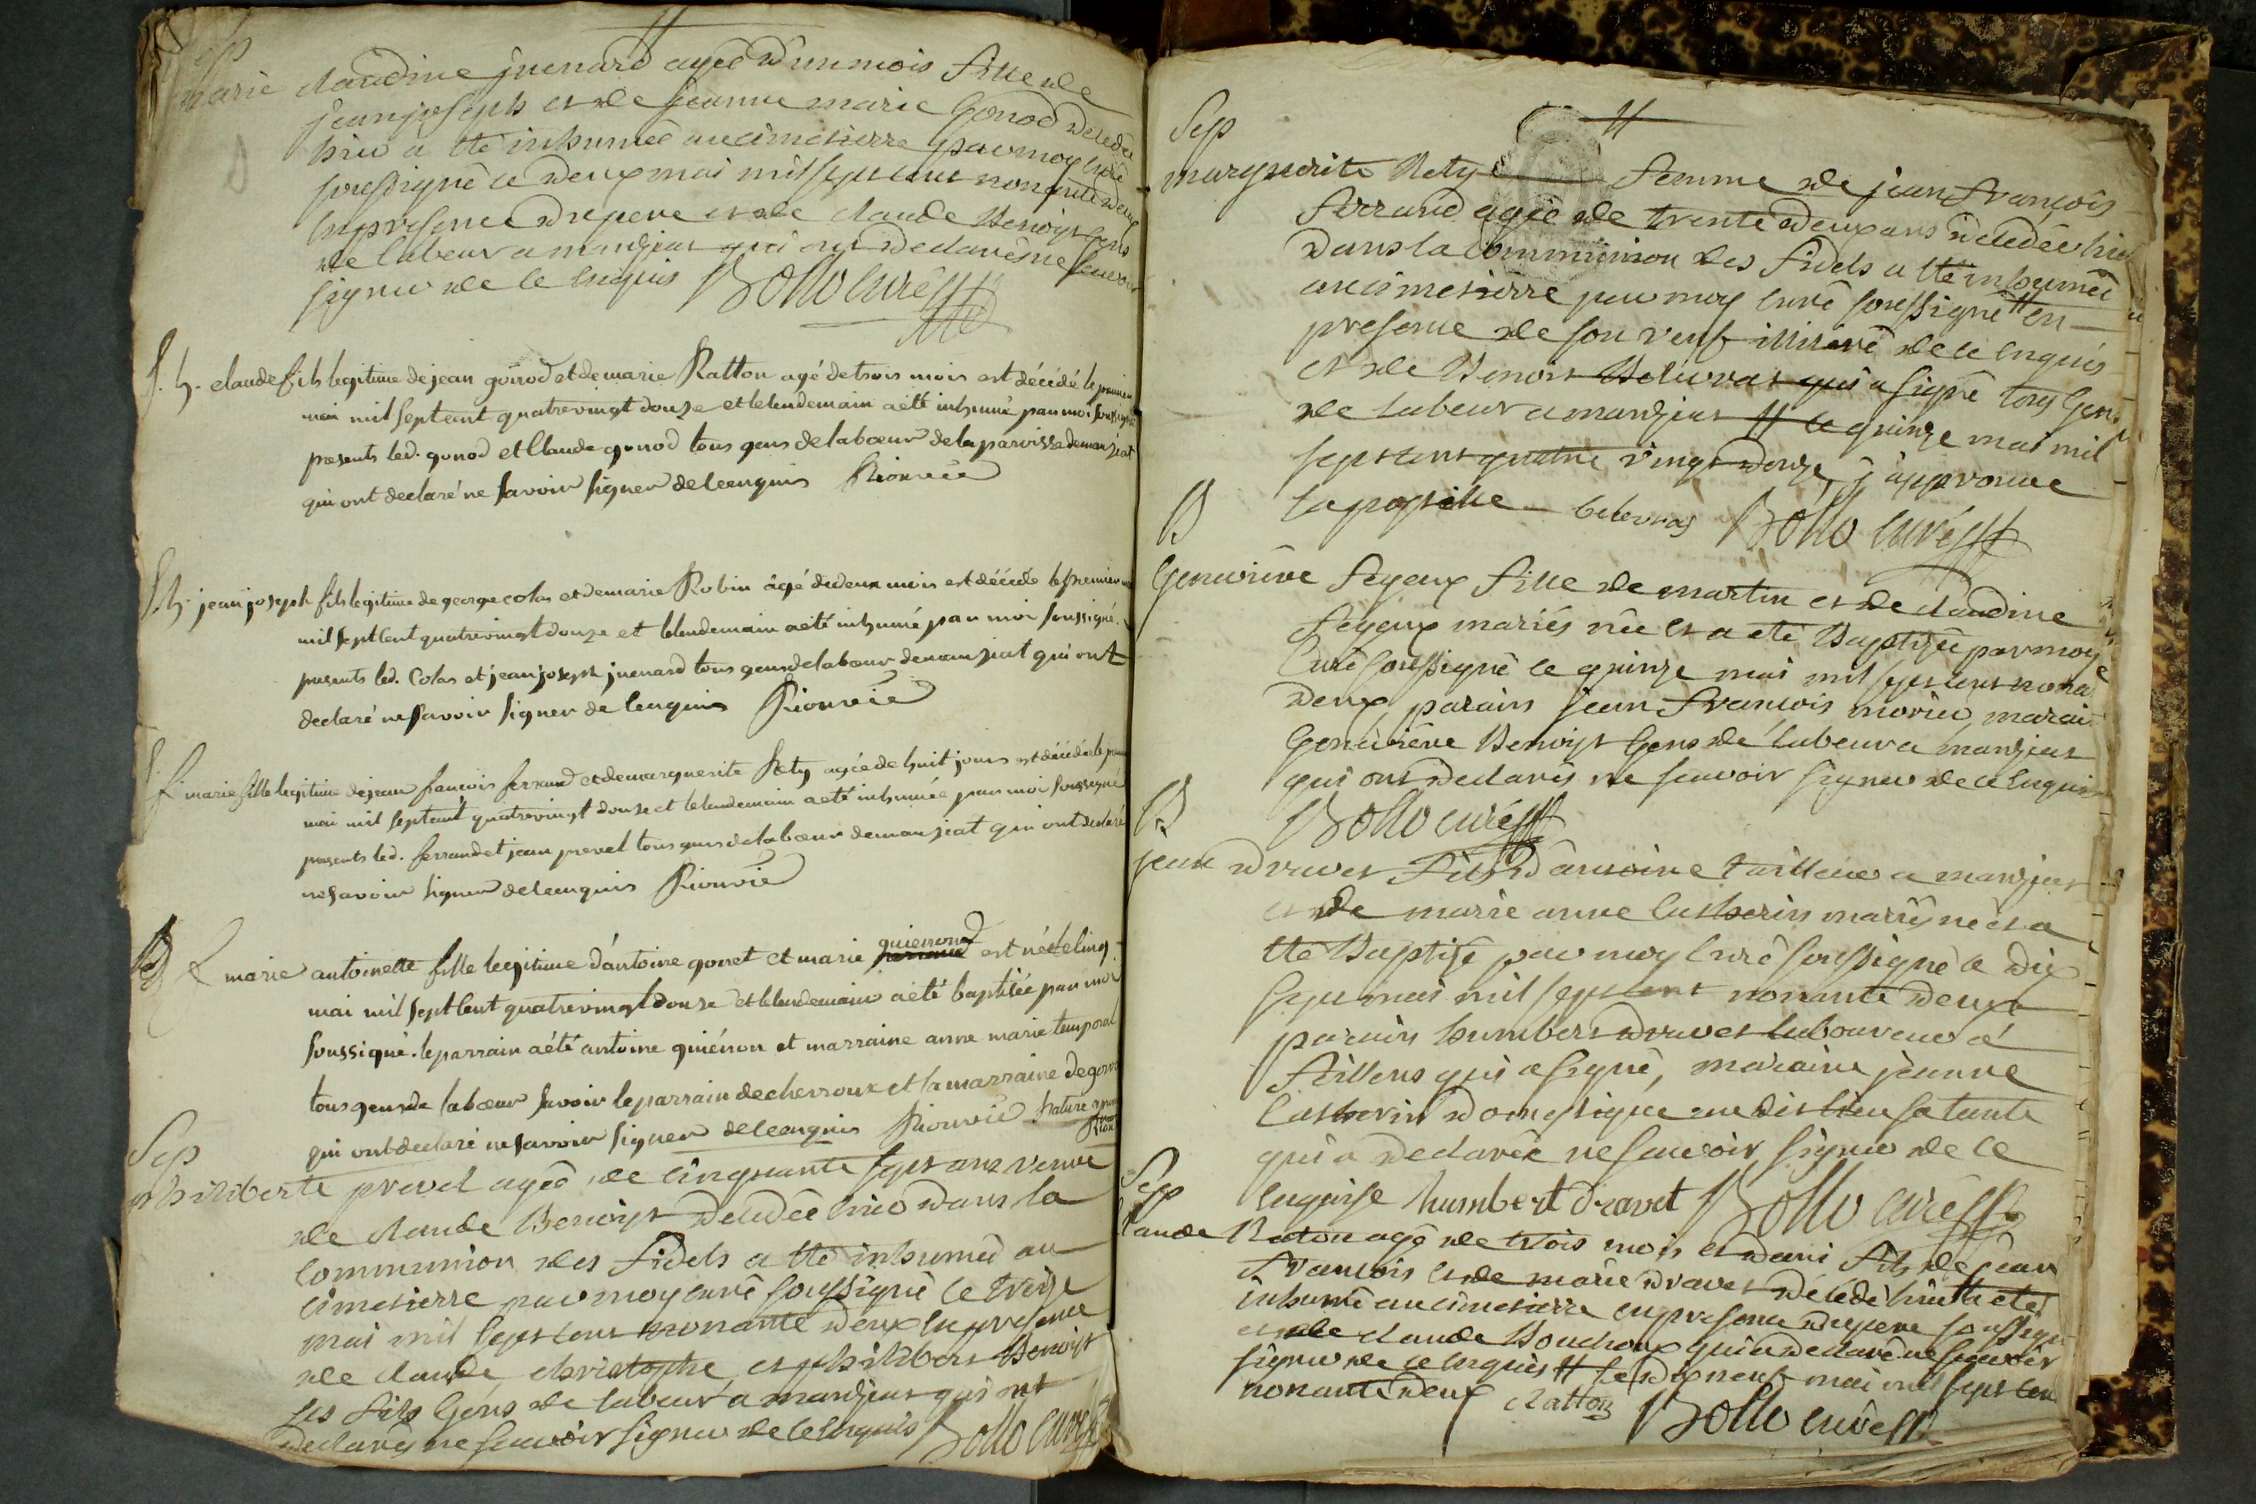 Sep
marie claudine juenard agée d'un mois fille de
jean joseph et de jeanne marie Gonod decedée
hier a été inhumée au cimetierre par moy curé
soussigné le deux mai mil sept cent nonante deux
en presence du pere et de claude Benoist gens
de labeur a mandjiat qui ont declarés ne scavoir
signer de ce enquis Bollo curé
S. h. claude fils legitime de jean gonod et de marie Ratton agé de trois mois est décédé le premier
mai mil sept cent quatrevingt douze et le lendemain a été inhumé par moi soussigné
presents led. gonod et Claude gonod tous gens de labœur de la paroisse de manziat
qui ont declaré ne savoir signer de ce enquis Rionvée
S. h. jean joseph fils legitime de george colas et de marie Robin âgé de deux mois est décédé le premier mai
mil sept cent quatrevingt douze et le lendemain a été inhumé par moi soussigné.
presents led. Colas et jean joseph juenard tous gens de labœur de manziat qui ont
declaré ne savoir signer de ce enquis Rionvée
S. f. marie fille legitime de jean francois ferrand et de marguerite Rety agée de huit jours est décédée le premier
mai mil sept cent quatrevingt douze et le lendemain a été inhumée par moi soussigné
presents led. ferrand et jean prevel tous gens de labœur de manziat qui ont declaré
ne savoir signer de ce enquis Rionvée
B f marie antoinette fille legitime d'antoine gonet et marie quienond est née le cinq
mai mil sept cent quatrevingt douze et le lendemain a été baptisée par moi
soussigné. le parrain a été antoine quiénon et marraine anne marie temporal
tous gens de labœur savoir le parrain de chevroux et la marraine de gorre
qui ont declaré ne savoir signer de ce enquis Rionvée. Rature
Sep
philiberte prevel agée de cinquante sept ans veuve
de claude Benoist decedée hier dans la
communion des fidels a été inhumée au
cimetierre par moy curé soussigné le treize
mai mil sept cent nonante deux en presence
de claude, christophe, et philibert Benoist
ses fils Gens de labeur a mandjiat qui ont
declarés ne scavoir signer de ce enquis Bollo curé
Sep
marguerite Rety femme de jean francois
ferrand agée de trente deux ans decedée hier
dans la communion des fidels a été inhumée
au cimetierre par moy curé soussigné # en
presence de son veuf illiteré de ce enquis
et de Benoit Believras qui a signé tous Gens
de labeur a mandjiat # le quinze mai mil
sept cent quatre vingt douze, j'approuve
la postille belevras Bollo curé
B
Genevieve feyeux fille de martin et de claudine
feyeux mariés née et a eté Baptisée par moy
Curé soussigné le quinze mai mil sept cent nona
deux, parain jean francois morier, marai
Genevieve Benoist Gens de labeur a mandjiat
qui ont declarés ne scavoir signer de ce enquis
Bollo curé
B
jean dravet fils d'antoine tailleur a mandjiat
et de marie anne catherin mariés né et a
été Baptisé par moy curé soussigné le dix
sept mai mil sept cent nonante deux
parain humbert dravet laboureur a
fillens qui a signé, maraine jeanne
catherin domestique au dit lieu sa tante
qui a declarée ne scavoir signer de ce
enquise humbert dravet Bollo curé
Sep
Claude Raton agé de trois mois et demi fils de jean
francois et de marie dravet décédé hier a eté
inhumé au cimetierre en presence du pere soussigné
et de claude Bouchoux qui a declaré ne scavoir
signer de ce enquis # le dix neuf mai mil sept cent
nonante deux Ratton Bollo curé